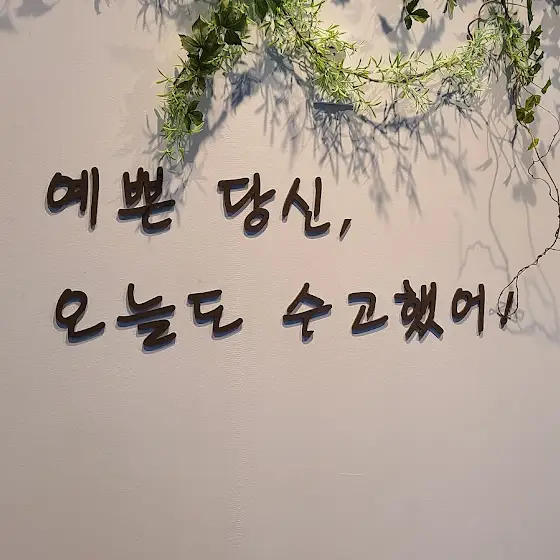 예쁜 당신,
오늘도 수고했어!